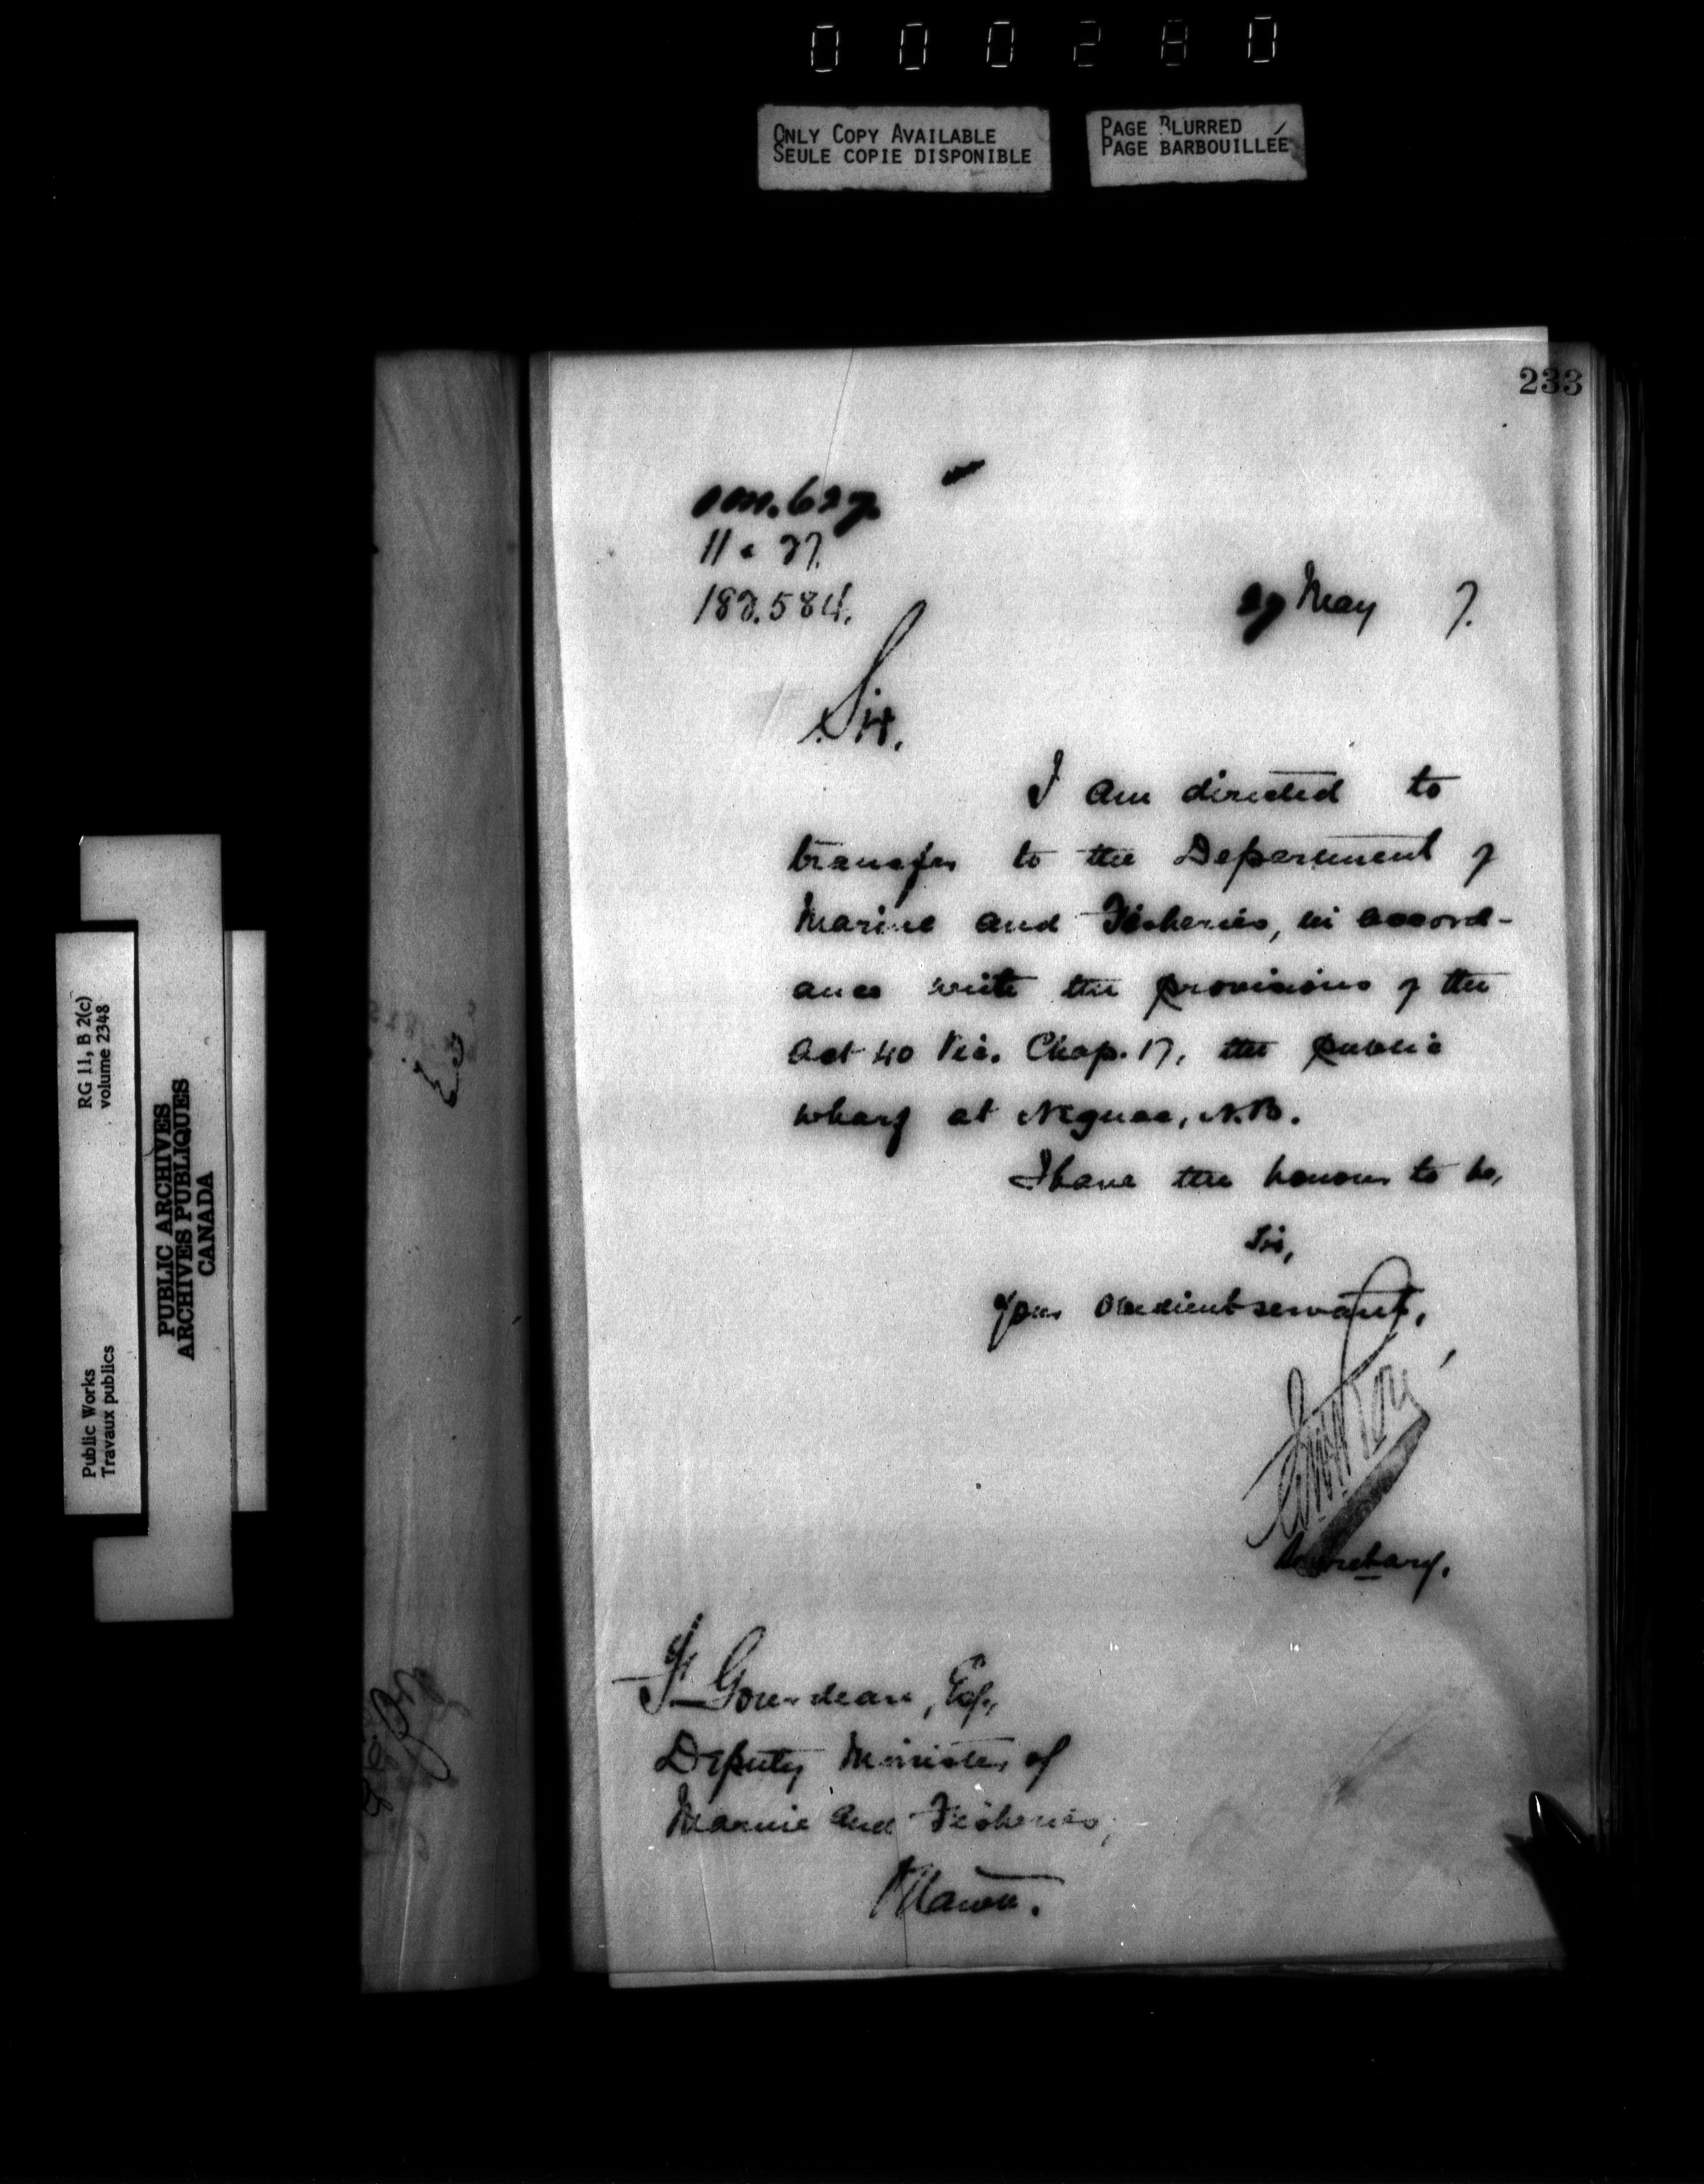 000280
ONLY COPY AVAILABLE
SEULE COPIE DISPONIBLE
PAGE BLURRED
PAGE BARBOUILLÉE
233
627
11 " 27.
182.584.
27 May 7.
Sir,
I am directed to
transfer to the Department of
Marine and Fisheries, in accord-
ance with the provisions of the
Act 40 Vic. Chap. 17, the public
wharf at Neguac, N.B.
I have the honour to be,
Sir,
Your obedient servant,
Secretary.
F. Gourdeau, Esq.,
Deputy Minister of
Marine and Fisheries,
Ottawa.
RG 11, B 2(c)
volume 2348
Public Works
Travaux publics
PUBLIC ARCHIVES
ARCHIVES PUBLIQUES
CANADA